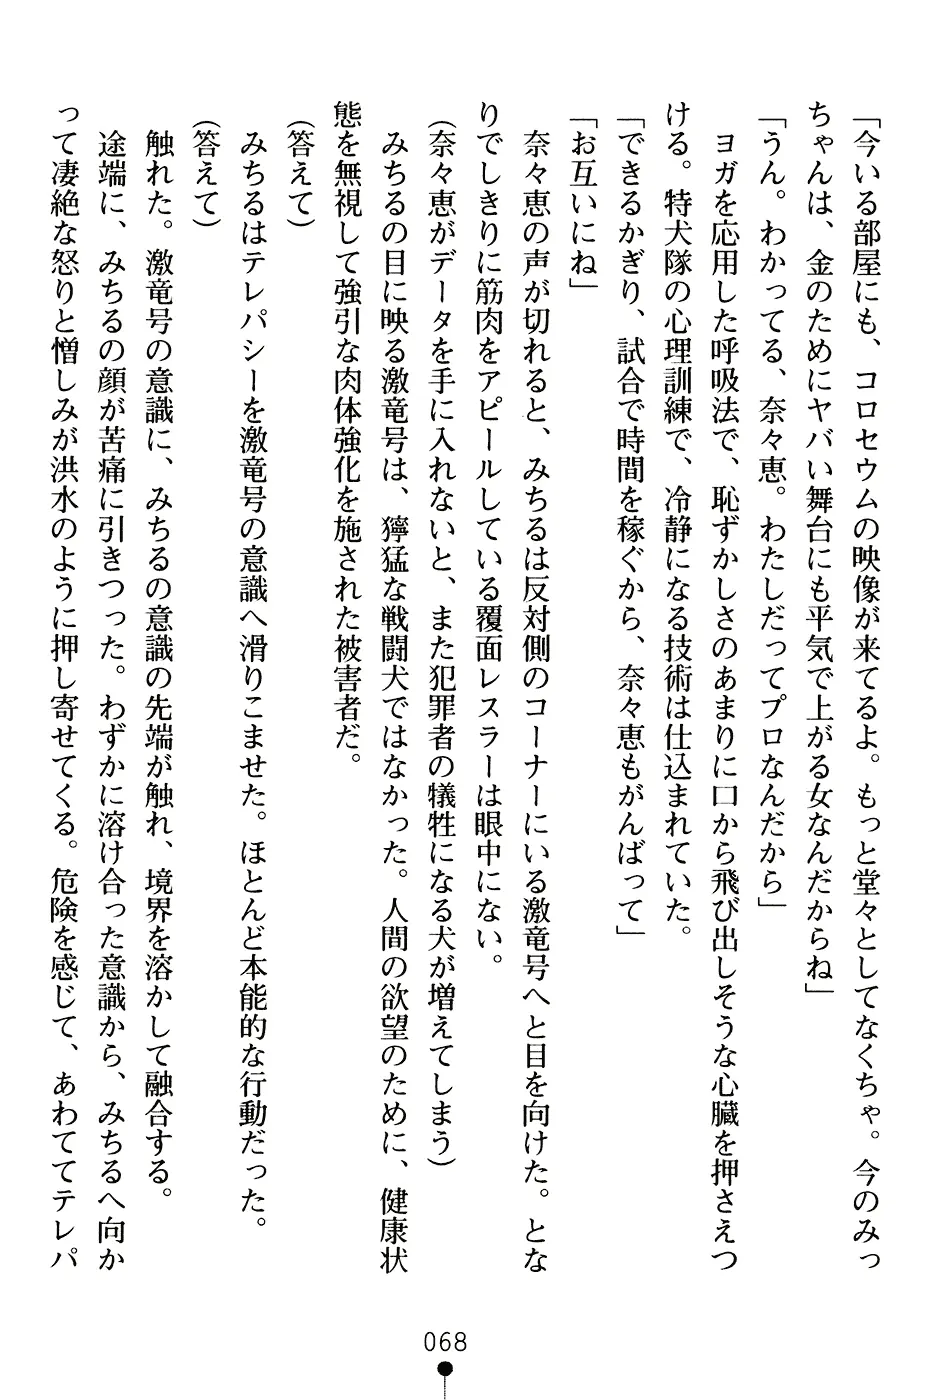 「今いる部屋にも、コロセウムの映像が来てるよ。もっと堂々としてなくちゃ。今のみっ
ちゃんは、金のためにヤバい舞台にも平気で上がる女なんだからね」
「うん。わかってる、奈々恵。わたしだってプロなんだから」
ヨガを応用した呼吸法で、恥ずかしさのあまりに口から飛び出しそうな心臓を押さえつ
ける。特犬隊の心理訓練で、冷静になる技術は仕込まれていた。
「できるかぎり、試合で時間を稼ぐから、奈々恵もがんばって」
「お互いにね」
奈々恵の声が切れると、みちるは反対側のコーナーにいる激竜号へと目を向けた。とな
りでしきりに筋肉をアピールしている覆面レスラーは眼中にない。
(奈々恵がデータを手に入れないと、また犯罪者の犠牲になる犬が増えてしまう)
みちるの目に映る激竜号は、獰猛な戦闘犬ではなかった。人間の欲望のために、健康状
態を無視して強引な肉体強化を施された被害者だ。
(答えて)
みちるはテレパシーを激竜号の意識へ滑りこませた。ほとんど本能的な行動だった。
(答えて)
触れた。激竜号の意識に、みちるの意識の先端が触れ、境界を溶かして融合する。
途端に、みちるの顔が苦痛に引きつった。わずかに溶け合った意識から、みちるへ向か
って凄絶な怒りと憎しみが洪水のように押し寄せてくる。危険を感じて、あわててテレパ
068